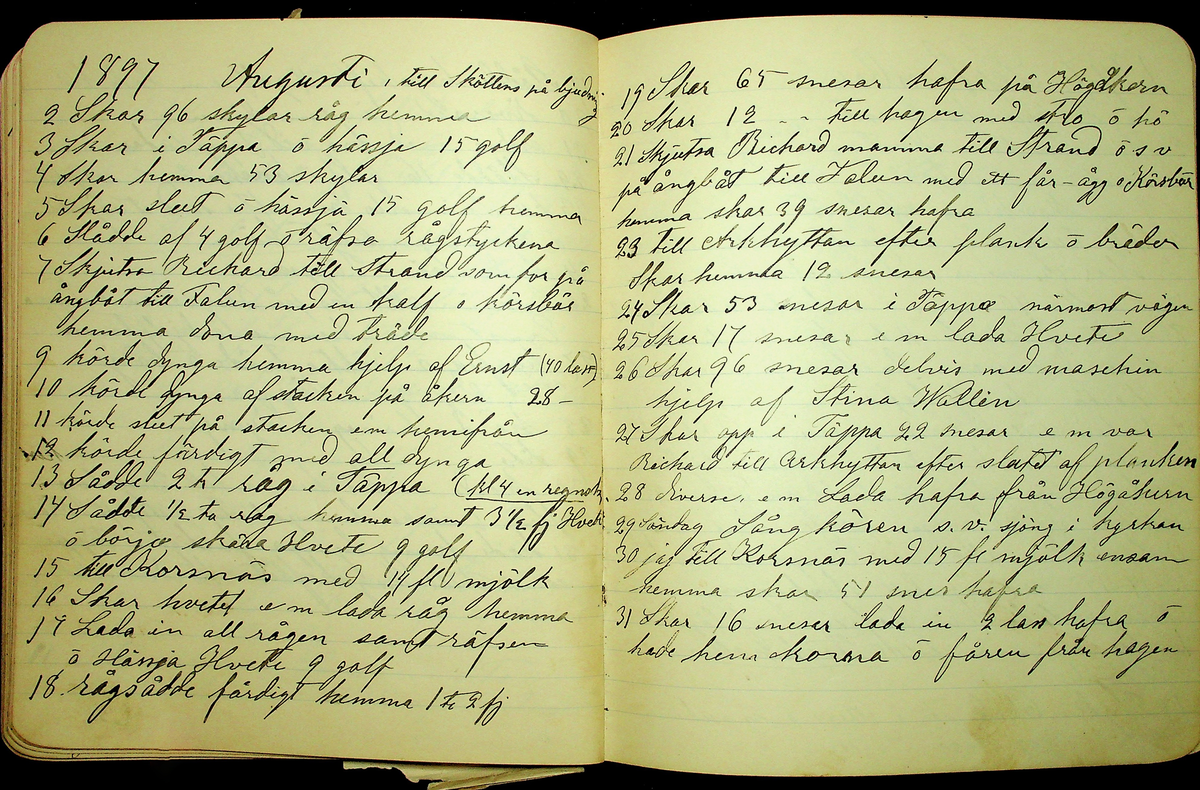 1897 Augusti 1 till Sköttens på bjudning
2 Skar 96 skylar råg hemma
3 Skar i Täppa ö hässja 15 golf
4 Skar hemma 53 skylar
5 Skar slut ö hässja 15 golf hemma
6 Slådde af 4 golf ö räfsa rågstyckena
7 Skjutsa Richard till Strand som for på
ångbåt till Falun med en kalf o Körsbär
hemma dona med träde
9 körde dynga hemma hjelp af Ernst (40 lass)
10 körde dynga af stacken på åkern 28 -
11 körde slut på stacken em hemifrån
12 körde färdigt med all dynga
13 Sådde 2 t råg i Täppa (kl 4 en regnsk.
14 Sådde 1/2 ta råg hemma samt 3 1/2 fj Hvete
ö börja skära Hvete 9 golf
15 till Korsnäs med 14 fl mjölk
16 Skar hvetet e m lada råg hemma
17 Lada in all rågen samt räfsen
ö Hässja Hvete 9 golf
18 rågsådde färdigt hemma 1 t 2 fj
19 Skar 65 snesar hafra på Högåkern
20 Skar 12 - - till hagen med sto ö hö
21 Skjutsa Richard mamma till Strand ö s v
på ångbåt till Falun med ett får - ägg o Körsbär
hemma skar 39 snesar hafra
23 till Arkhyttan efter plank ö bräder
Skar hemma 12 snesar
24 Skar 53 snesar i Täppa närmast vägen
25 Skar 17 snesar e m lada Hvete
26 Skar 96 snesar delvis med maschin
hjelp af Stina Wallen
27 Skar opp i Täppa 22 snesar e m var
Richard till Arkhyttan efter slutet af planken
28 diverse, e m Lada hafra från Högåkern
29 Söndag Sång kören s. v. sjöng i kyrkan
30 jag till Korsnäs med 15 fl mjölk ensam
hemma skar 51 snes hafra
31 Skar 16 snesar lada in 2 lass hafra ö
hade hem korna ö fåren från hagen